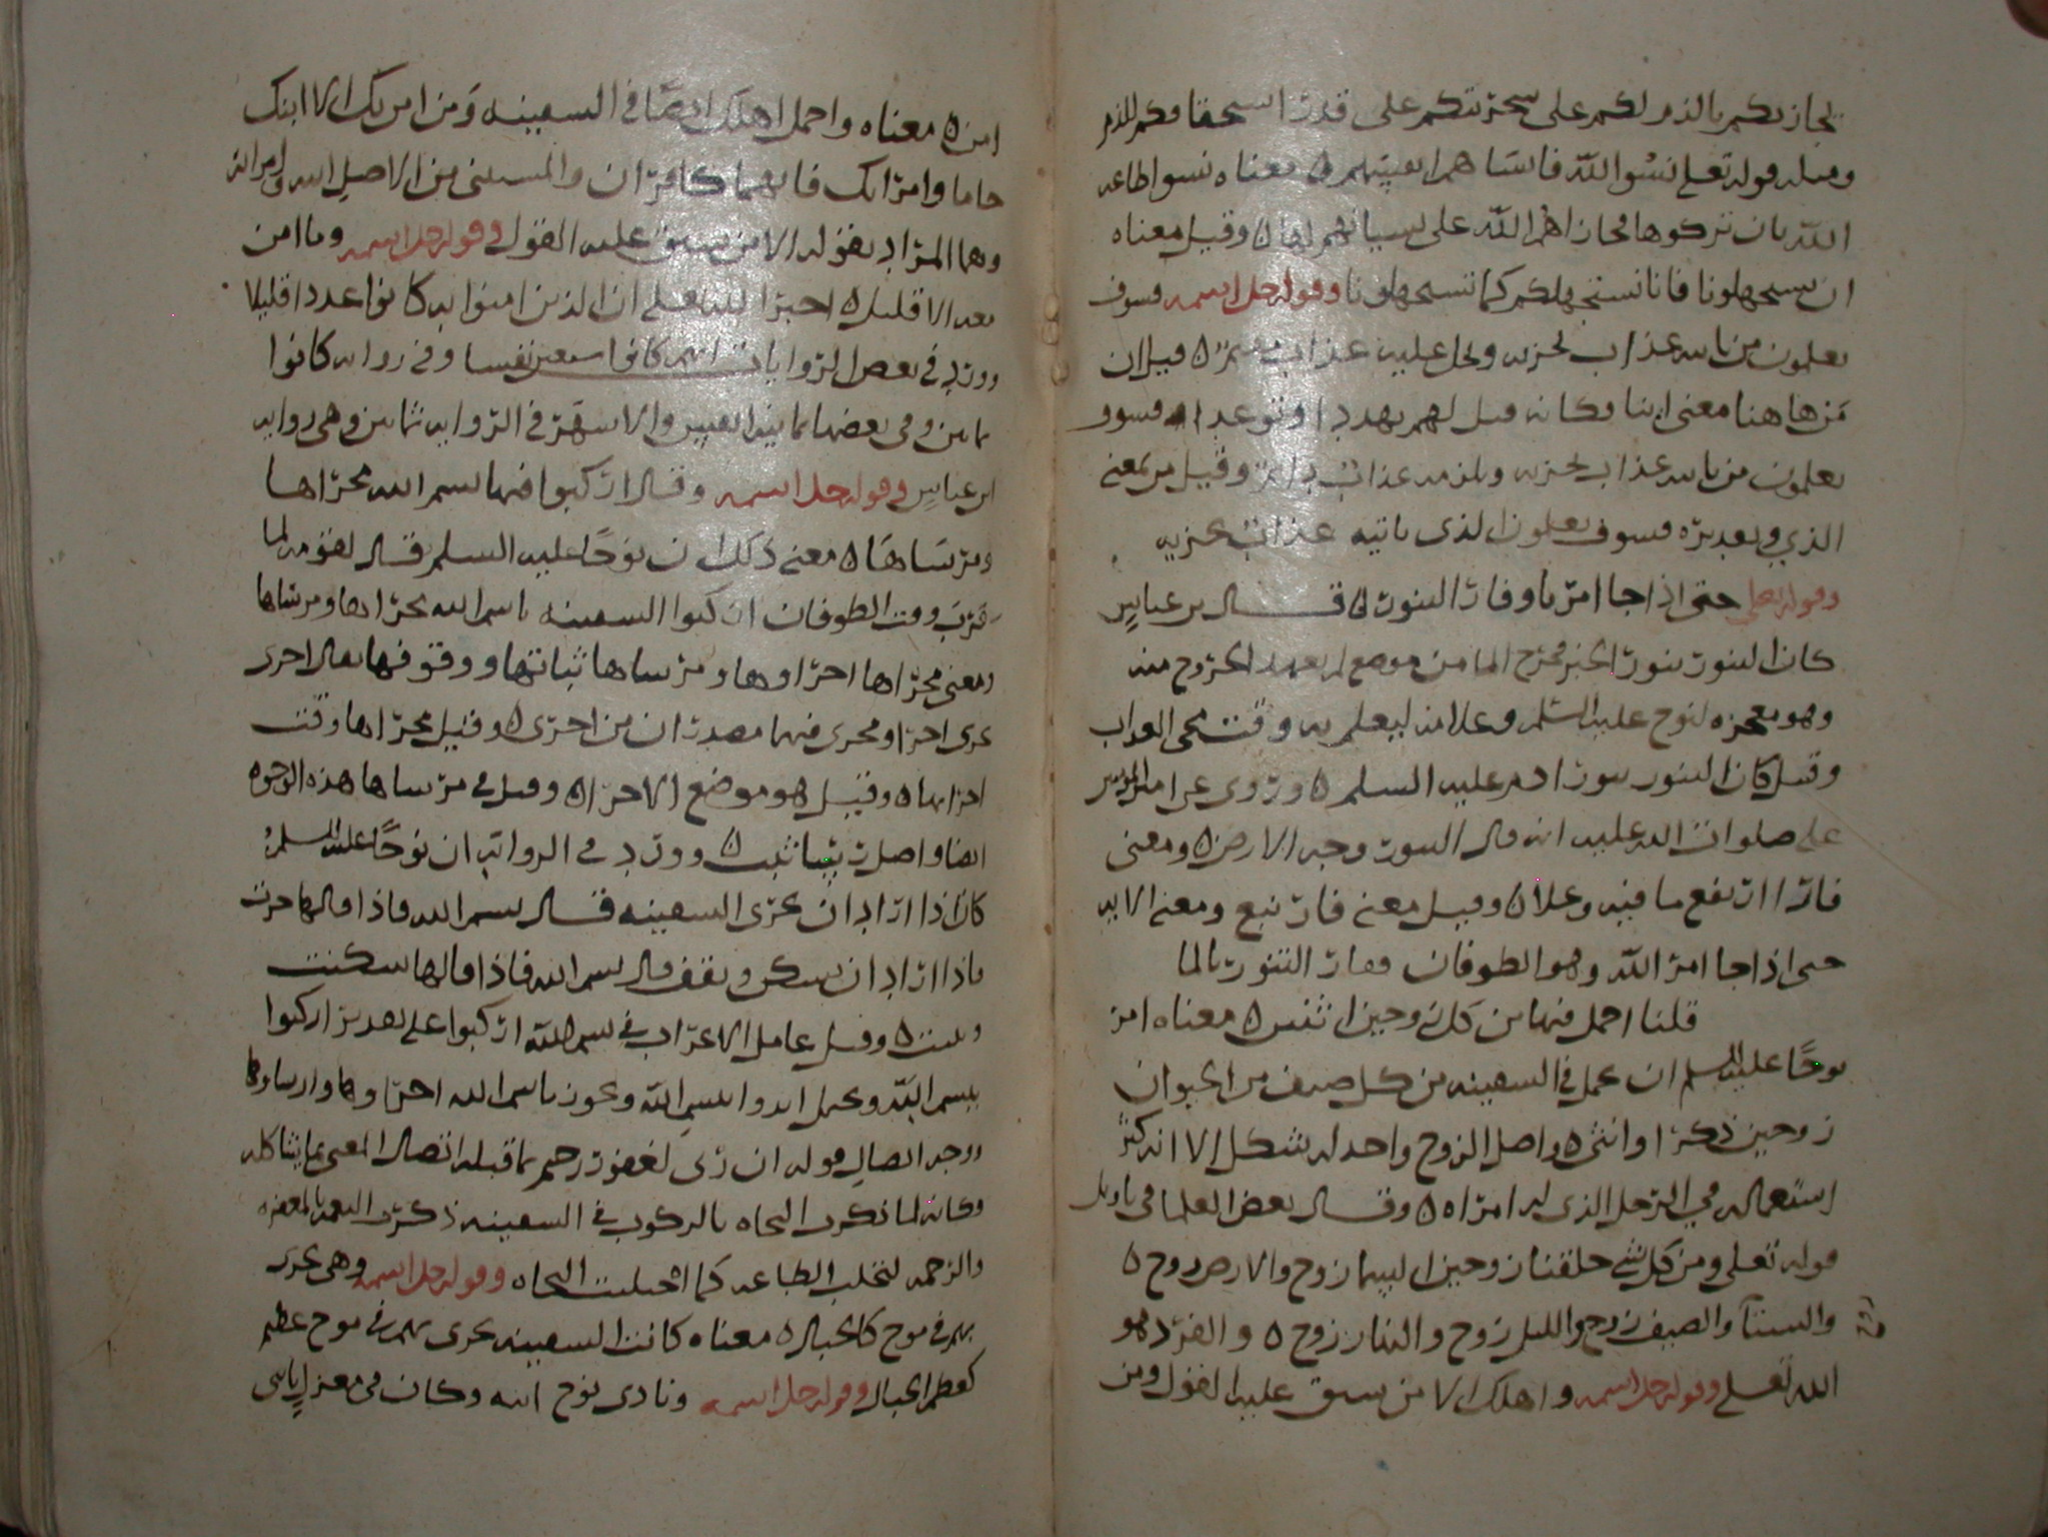 يجازيكم بالذم لكم على سخريتكم على قدر استحقاقكم للذم
ومثله قوله تعلى نسوا الله فانساهم انفسهم ٥ معناه نسوا طاعه
الله بان تركوها فجازاهم الله على نسيانهم لها ٥ وقيل معناه
ان تستجهلونا فانا نستجهلكم كما تستجهلونا وقوله جل اسمه فسوف
تعلمون من ياتيه عذاب يخزيه ويحل عليه عذاب مقيم ٥ قيل ان
من هاهنا معنى اينا فكانه قيل لهم تهددا وتوعدا فسوف
تعلمون من ياتيه عذاب يخزيه ويلزمه عذاب دايم وقيل من بمعنى
الذي وتقديره فسوف تعلمون الذى ياتيه عذاب يخزيه
وقوله تعلى حتى اذا جا امرنا وفار التنور ٥ قال بن عباس
كان التنور تنور الخبز مخرج الما من موضع لم يعهد الخروج منه
وهو معجزه لنوح عليه السلم وعلامه ليعلم به وقت مجى العذاب
وقيل كان التنور تنور ادم عليه السلم ٥ وروى عن امير المومنين
على صلوات الله عليه انه قال التنور وجه الارض ٥ ومعنى
فار اارتفع ما فيه وعلا ٥ وقيل معنى فار نبع ومعنى الايه
حتى اذا جا امر الله وهو الطوفان وفار التنور بالما
قلنا احمل فيها من كل زوجين اثنين ٥ معناه امر
نوحا عليه السلم ان يحمل في السفينه من كل صنف من الحيوان
زوجين ذكرا وانثى ٥ واصل الزوج واحد له شكل الا انه كثر
استعماله في الرجل الذى له امراه ٥ وقال بعض العلما في تاويل
قوله تعلى ومن كل شي خلقنا زوجين السما زوج والارض زوج ٥
والشتآ والصيف زوج والليل زوج والنهار زوج ٥ والفرد هو
الله تعلى وقوله جل اسمه واهلك الا من سبق عليه القول ومن
امن ٥ معناه واحمل اهلك ايضا في السفينه ومن امن بك الا ابنك
حاما وامراتك فانهما كافران والمستثنى من الاصل ابنه وامراته
وهما المراد بقوله الا من سبق عليه القول وقوله جل اسمه وما امن
معه الا قليل ٥ اخبر الله تعلى ان الذين امنوا به كانوا عددا قليلا
وورد في بعض الروايات انهم كانوا سبعين نفسا وفي روايه كانوا
ثمانين وفي بعضها ثمانيه انفس والاشهر في الروايه ثمانين وهى روايه
ابن عباس وقوله جل اسمه وقال اركبوا فيها بسم الله مجراها
ومرساها ٥ معنى ذلك ان نوحا عليه السلم قال لقومه لما
قرب وقت الطوفان اركبوا السفينه باسم الله مجراها ومرساها
ومعنى مجراها اجراوها ومرساها ثباتها ووقوفها يقال اجرى
يجرى اجرا ومجرى فيهما مصدران من اجرى ٥ وقيل مجراها وقت
اجرايها ٥ وقيل هو موضع الاجرا ٥ وقيل في مرساها هذه الوجوه
ايضا واصل رسا ثبت ٥ وورد في الروايه ان نوحا عليه السلم
كان اذا اراد ان تجرى السفينه قال بسم الله فاذا قالها جرت
فاذا اراد ان تسكن وتقف قال بسم الله فاذا قالها سكنت
وثبتت ٥ وقيل عامل الاعراب في بسم الله اركبوا على تقدير اركبوا
بسم الله ويحمل ابدوا بسم الله ويجوز باسم الله اجراوها وارساوها
ووجه اتصال قوله ان ربى لغفور رحيم بما قبله اتصال المعنى بما يشاكله
وكانه لما ذكرت النجاه بالركوب في السفينه ذكرت النعمه بالمغفره
والرحمه لتجلب الطاعه كما اجتلبت النجاه وقوله جل اسمه وهى تجرى
بهم في موج كالجبال ٥ معناه كانت السفينه تجرى بهم في موج عظيم
كعظم الجبال وقوله جل اسمه ونادى نوح ابنه وكان في معزل يابنى